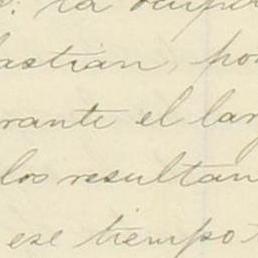 : la
astian, po
rante el lar
los resultan
ese tiempo